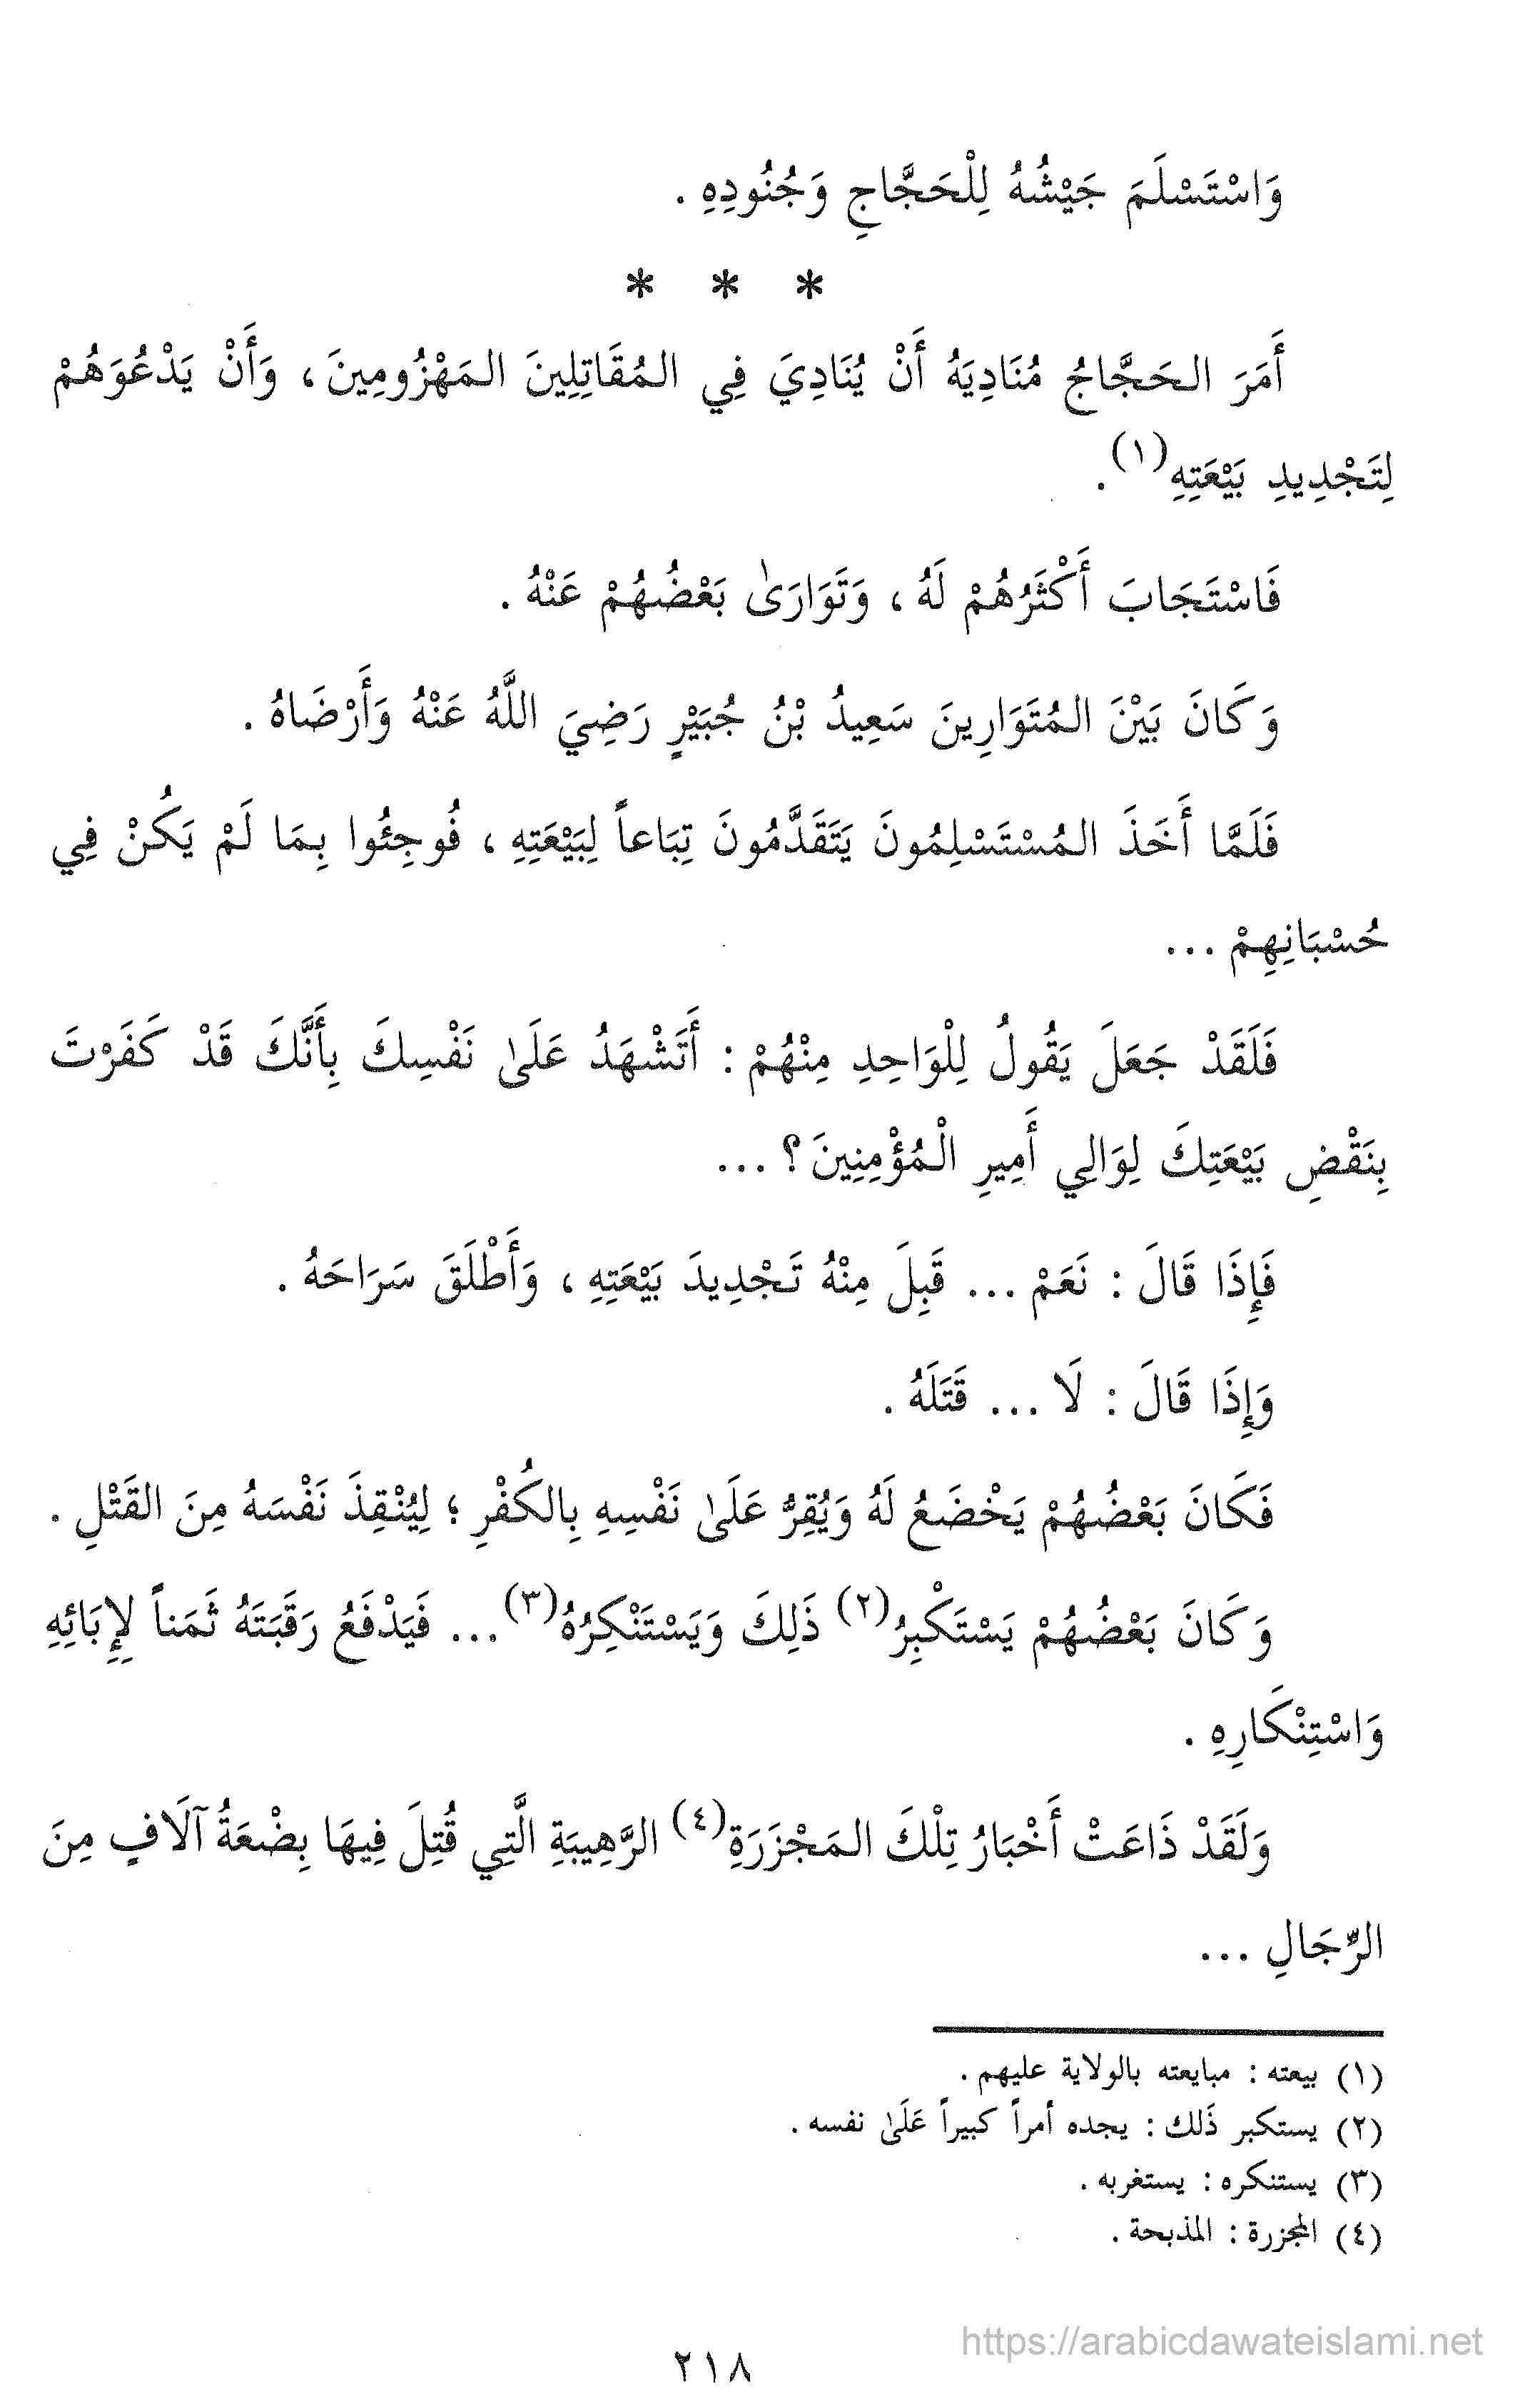 وَاسْتَسْلَمَ جَيْشُهُ لِلْحَجَّاجِ وَجُنُودِهِ .
* * *
أَمَرَ الحَجَّاجُ مُنَادِيَهُ أَنْ يُنَادِيَ فِي المُقَاتِلِينَ المَهْزُومِينَ ، وَأَنْ يَدْعُوَهُمْ
لِتَجْدِيدِ بَيْعَتِهِ(١) .
فَاسْتَجَابَ أَكْثَرُهُمْ لَهُ ، وَتَوَارَىٰ بَعْضُهُمْ عَنْهُ .
وَكَانَ بَيْنَ المُتَوَارِينَ سَعِيدُ بْنُ جُبَيْرٍ رَضِيَ اللَّهُ عَنْهُ وَأَرْضَاهُ .
فَلَمَّا أَخَذَ المُسْتَسْلِمُونَ يَتَقَدَّمُونَ تِبَاعاً لِبَيْعَتِهِ ، فُوجِئُوا بِمَا لَمْ يَكُنْ فِي
حُسْبَانِهِمْ ...
فَلَقَدْ جَعَلَ يَقُولُ لِلْوَاحِدِ مِنْهُمْ : أَتَشْهَدُ عَلَىٰ نَفْسِكَ بِأَنَّكَ قَدْ كَفَرْتَ
بِنَقْضِ بَيْعَتِكَ لِوَالِي أَمِيرِ الْمُؤْمِنِينَ ؟ ...
فَإِذَا قَالَ : نَعَمْ ... قَبِلَ مِنْهُ تَجْدِيدَ بَيْعَتِهِ ، وَأَطْلَقَ سَرَاحَهُ .
وَإِذَا قَالَ : لَا ... قَتَلَهُ .
فَكَانَ بَعْضُهُمْ يَخْضَعُ لَهُ وَيُقِرُّ عَلَىٰ نَفْسِهِ بِالكُفْرِ ؛ لِيُنْقِذَ نَفْسَهُ مِنَ القَتْلِ .
وَكَانَ بَعْضُهُمْ يَسْتَكْبِرُ(٢) ذَلِكَ وَيَسْتَنْكِرُهُ(٣) ... فَيَدْفَعُ رَقَبَتَهُ ثَمَناً لِإِبَائِهِ
وَاسْتِنْكَارِهِ .
وَلَقَدْ ذَاعَتْ أَخْبَارُ تِلْكَ المَجْزَرَةِ(٤) الرَّهِيبَةِ الَّتِي قُتِلَ فِيهَا بِضْعَةُ آلَافٍ مِنَ
الرِّجَالِ ...
(١) بيعته : مبايعته بالولاية عليهم .
(٢) يستكبر ذَلك : يجده أمراً كبيراً عَلَىٰ نفسه .
(٣) يستنكره : يستغربه .
(٤) المجزرة : المذبحة .
https://arabicdawateislami.net
٢١٨